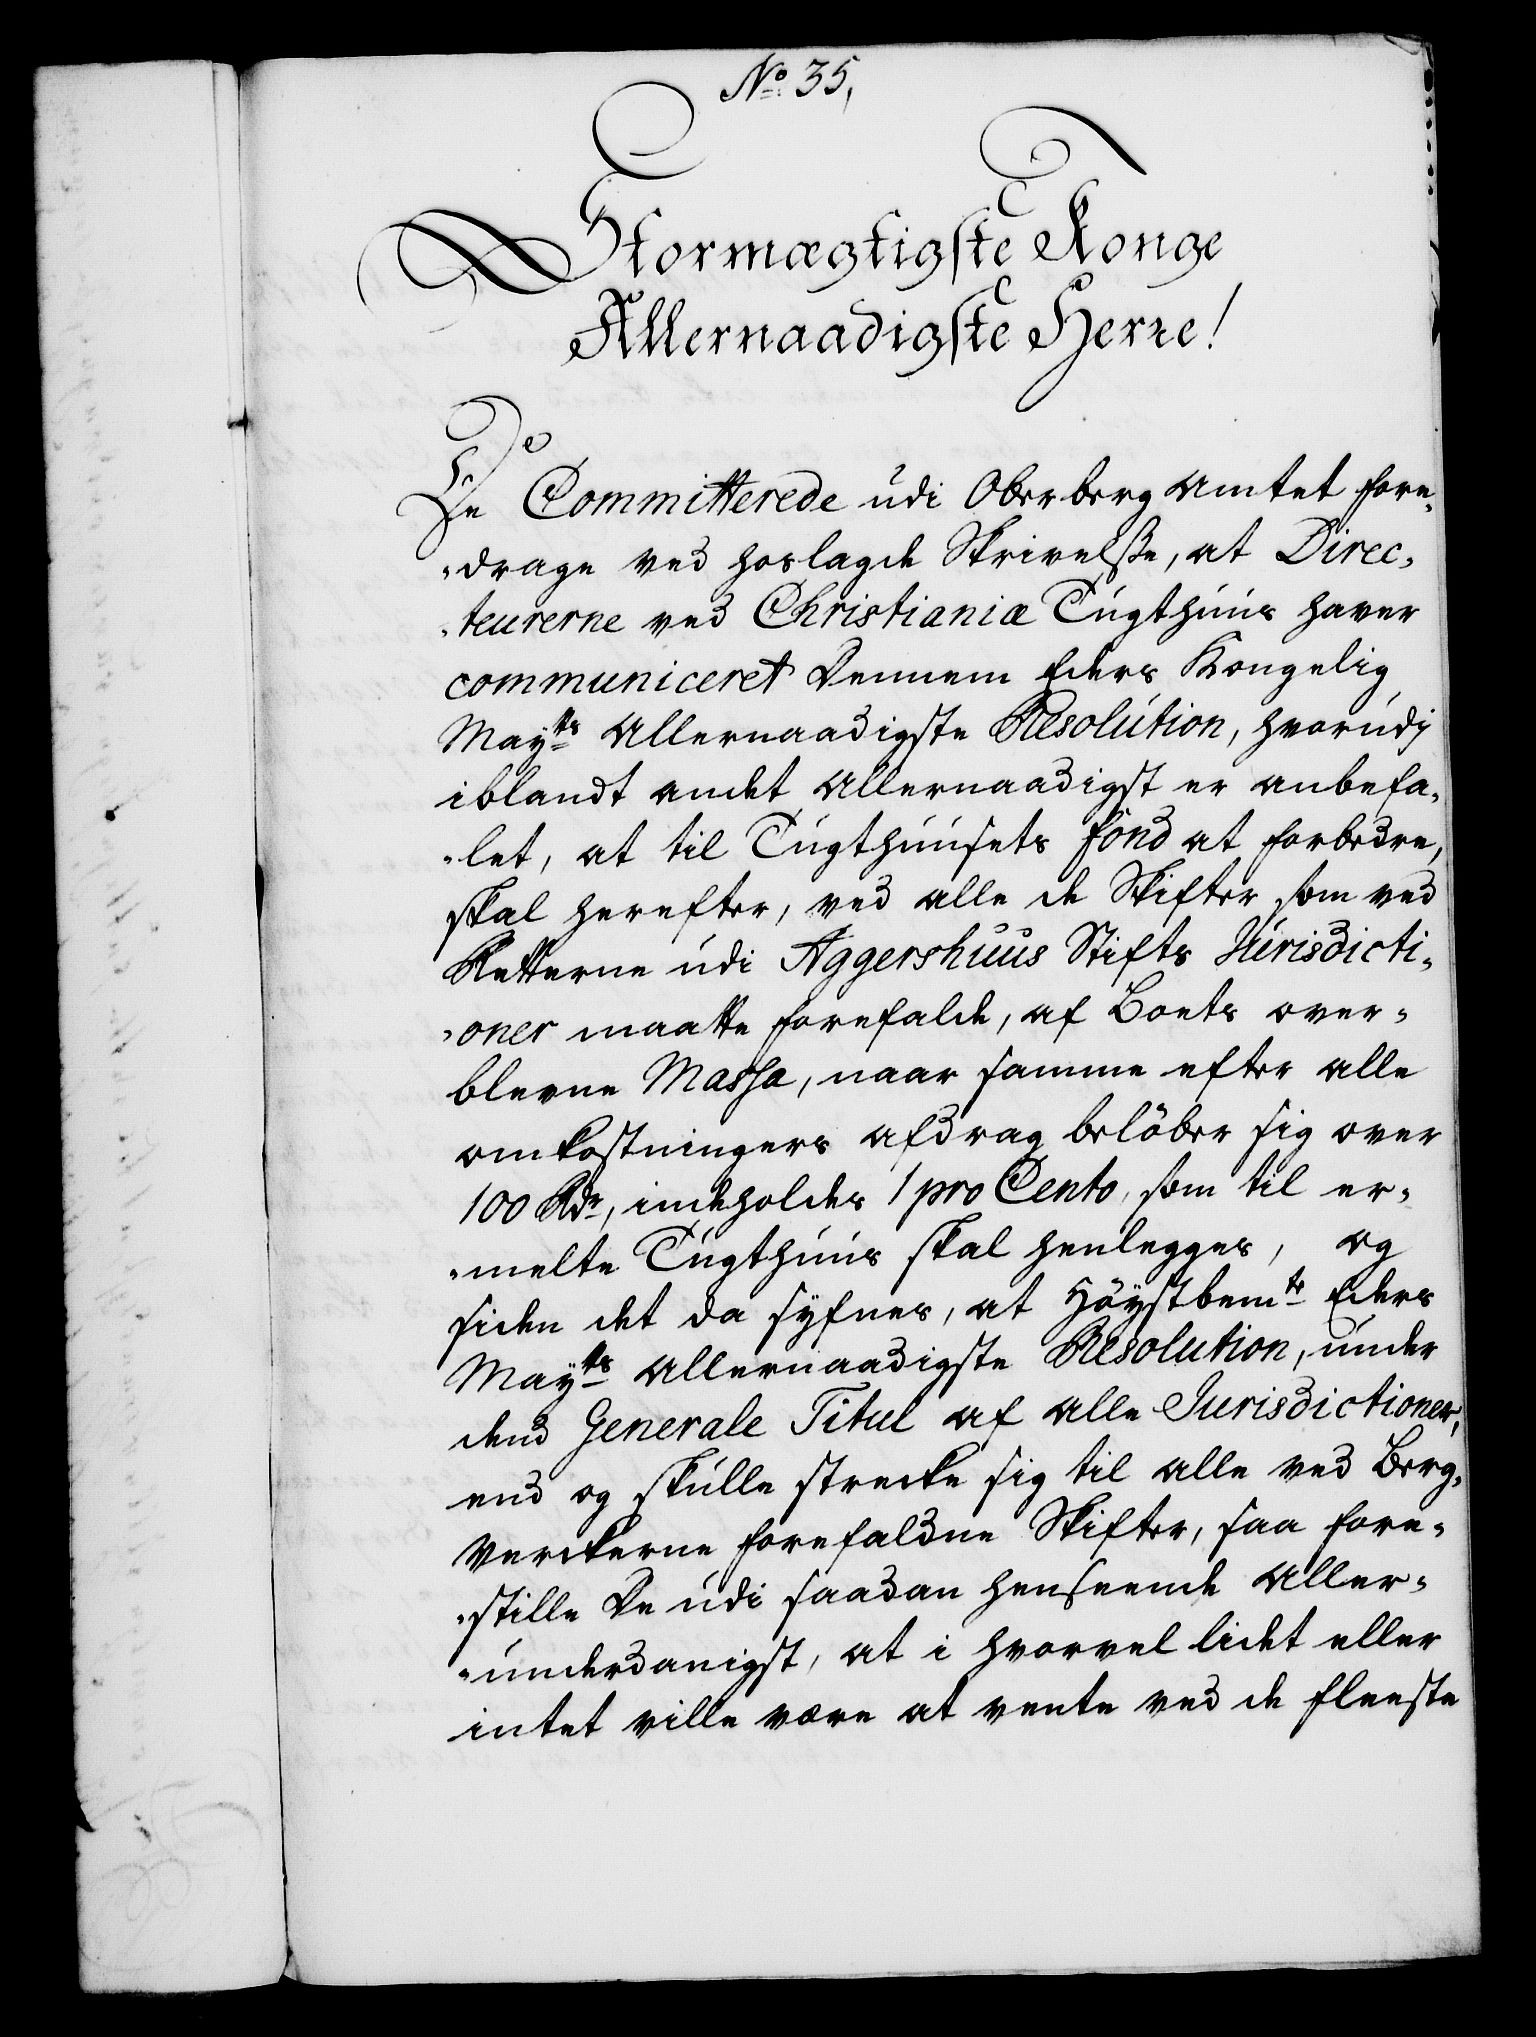 No 35,
Stormægtigste Konge
Allernaadigste Herre!
De Committerede udi Oberberg Amtet fore-
-drage ved hoslagde Skrivelsse, at Direc-
-teurerne ved Christianiæ Tugthuus haver
communiceret Dennem Eders Kongelig
Mayts Allernaadigste Resolution, hvorudj
iblandt andet Allernaadigst er anbefa-
-let, at til Tugthuusets fond at forbedre,
skal herefter, ved alle de Skifter som ved
Retterne udi Aggershuus Stifts Jurisdicti-
-oner maatte forefalde, af Boets over-
blevne Massa, naar samme efter alle
omkostningers afdrag belöber sig over
100 Rdr, indeholdes 1 pro Cento, som til er-
-melte Tugthuus skal henlegges, og
siden det da syfnes, at Höystbemte Eders
Mayts Allernaadigste Resolution, under
dend Generale Titul af alle Jurisdictioner,
end og skulle strecke sig til alle ved Berg-
Verckerne forefaldne Skifter, saa fore-
-stille De udi saadan henseende Aller-
-underdanigst, at i hvorvel lidet eller
intet ville være at vente ved de fleeste